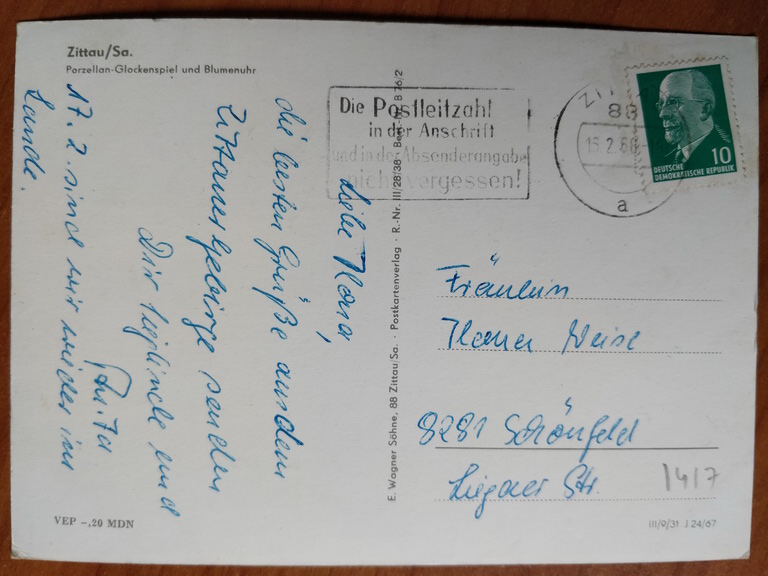 Zittau/Sa.
Porzellan-Glockenspiel und Blumenuhr
Liebe Hona,
die besten Grüße aus dem
Zittauer Gebirge senden
Dir Sieglinde und
Anita
17. 2. sind wir wieder im
Lande.
VEP –,20 MDN
E. Wagner Söhne, 88 Zittau/Sa. · Postkartenverlag · R.-Nr. III/28/38 · Best.-Nr. B 76/2
Die Postleitzahl
in der Anschrift
und in der Absenderangabe
nicht vergessen!
88
a
10
DEUTSCHE
DEMOKRATISCHE REPUBLIK
Fräulein
8281 Schönfeld
Str.
1417
III/9/31 J 24/67